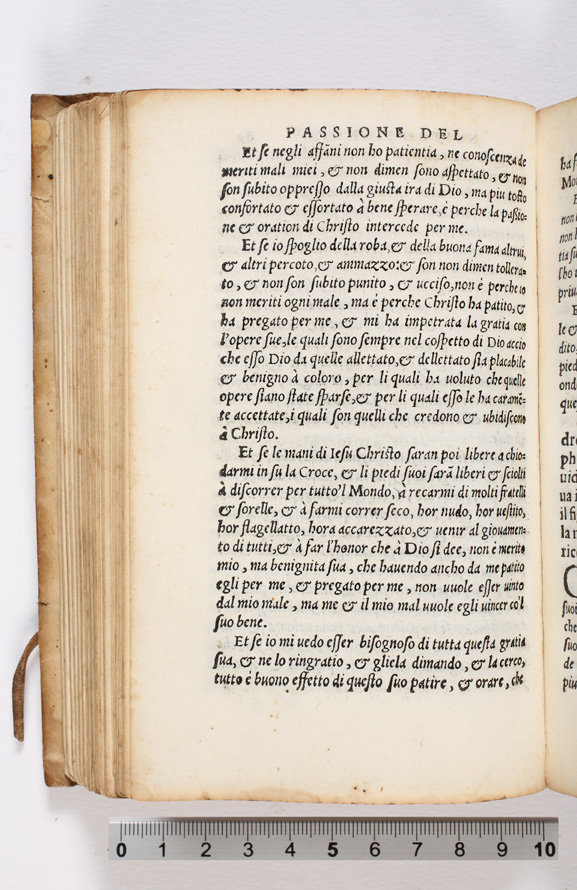 PASSIONE DEL
Et se negli affāni non ho patientia, ne conoscenza de
meriti mali miei, & non dimen sono aspettato, & non
son subito oppresso dalla giusta ira di Dio, ma piu tosto
confortato & essortato à bene sperare, è perche la passio-
ne & oration di Christo intercede per me.
Et se io spoglio della roba, & della buona fama altrui,
& altri percoto, & ammazzo: & son non dimen tollera-
to, & non son subito punito, & ucciso, non è perche io
non meriti ogni male, ma è perche Christo ha patito, &
ha pregato per me, & mi ha impetrata la gratia con
l'opere sue, le quali sono sempre nel cospetto di Dio accio
che esso Dio da quelle allettato, & dellettato sia placabile
& benigno à coloro, per li quali ha uoluto che quelle
opere siano state sparse, & per li quali esso le ha caramē-
te accettate, i quali son quelli che credono & ubidiscono
à Christo.
Et se le mani di Iesu Christo saran poi libere a chio-
darmi in su la Croce, & li piedi suoi sarā liberi & sciolti
à discorrer per tutto'l Mondo, à recarmi di molti fratelli
& sorelle, & à farmi correr seco, hor nudo, hor uestito,
hor flagellatto, hora accarezzato, & uenir al giouamen-
to di tutti, & à far l'honor che à Dio si dee, non è merito
mio, ma benignita sua, che hauendo ancho da me patito
egli per me, & pregato per me, non uuole esser uinto
dal mio male, ma me & il mio mal uuole egli uincer co'l
suo bene.
Et se io mi uedo esser bisognoso di tutta questa gratia
sua, & ne lo ringratio, & gliela dimando, & la cerco,
tutto è buono effetto di questo suo patire, & orare, che
0 1 2 3 4 5 6 7 8 9 10